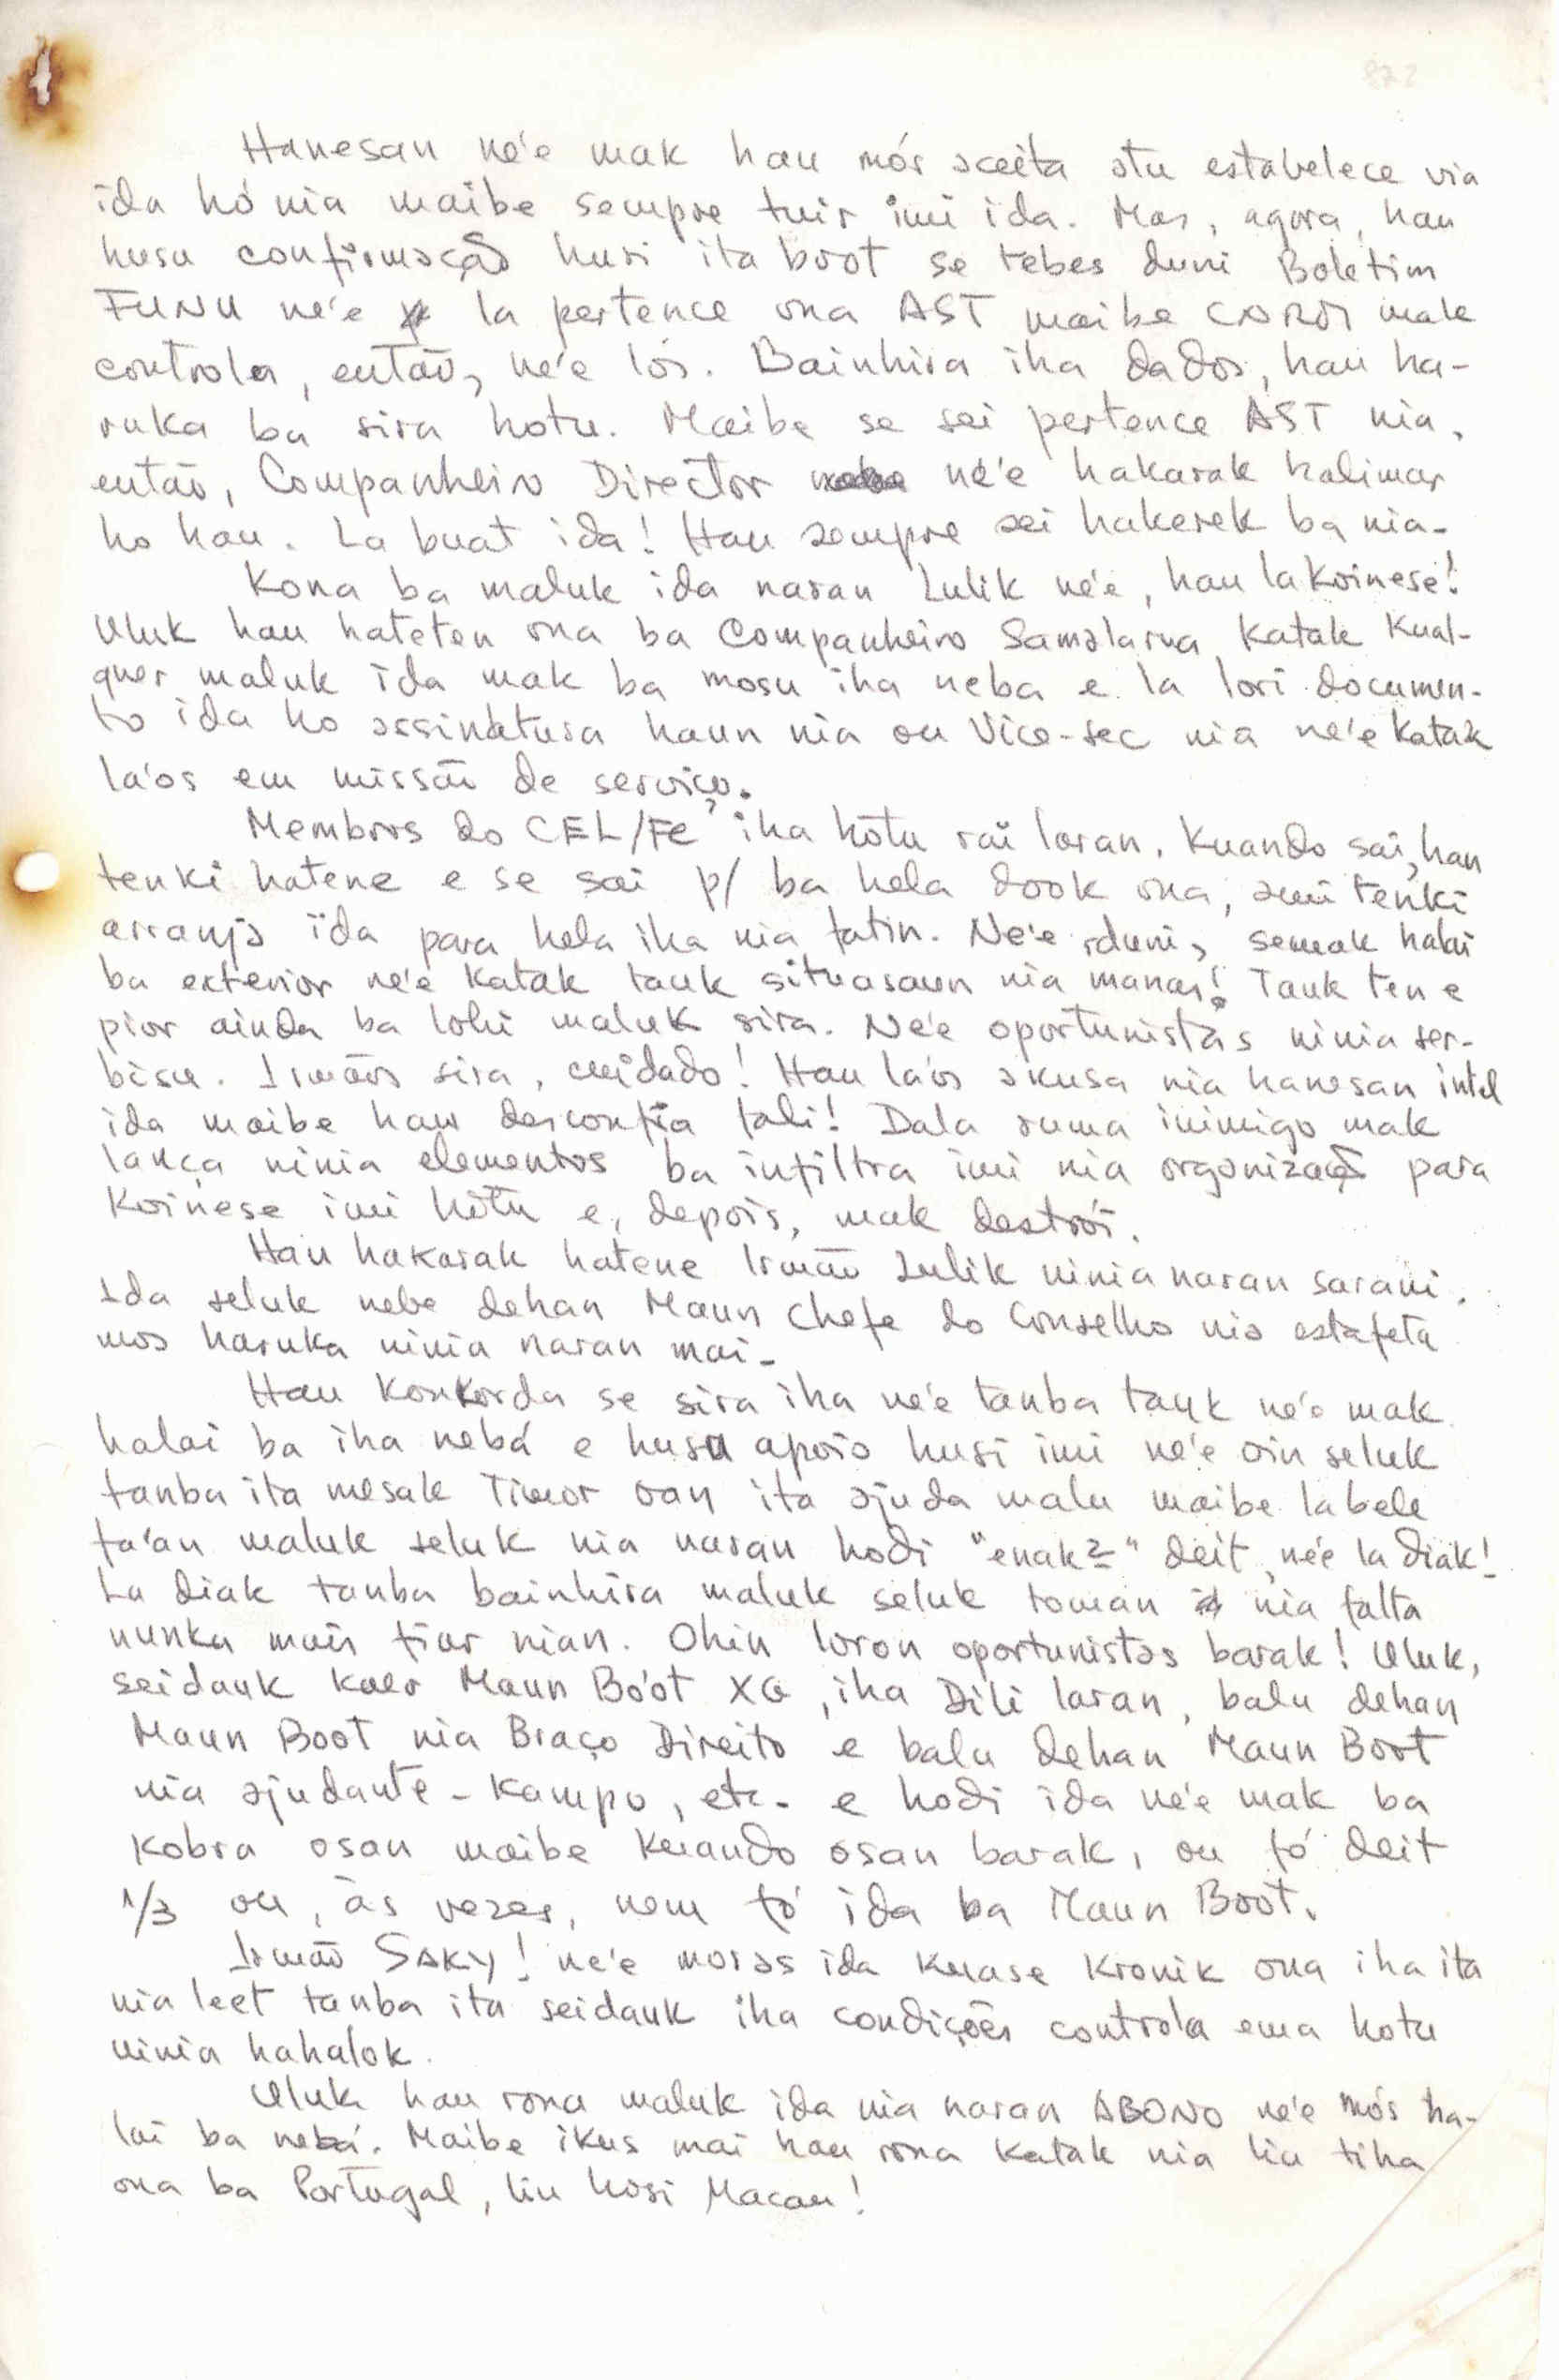 Hanesan ne'e mak hau mós aceita atu estabelece via
ida hó nia maibe sempre tuir imi ida. Mas, agora, hau
husu confirmação husi ita boot se tebes duni Boletim
FUNU ne'e la pertence ona AST maibe CNRM mak
controla, então, ne'e lós. Bainhira iha dados, hau ha-
ruka ba sira hotu. Maibe se sei pertence AST nia,
então, Companheiro Director ne'e hakarak halimar
ho hau. La buat ida! Hau sempre sei hakerek ba nia.
Kona ba maluk ida naran Lulik ne'e, hau la koinese!
Uluk hau hateten ona ba Companheiro Samalarua katak kual-
quer maluk ida mak ba mosu iha neba e la lori documen-
to ida ho assinatura haun nia ou Vice-sec nia ne'e katak
la'os em missão de serviço.
Membros do CEL/FE iha hotu rai laran. Kuando sai, hau
tenki hatene e se sai p/ ba hela dook ona, ami tenki
arranja ida para hela iha nia fatin. Ne'e duni, se mak halai
ba exterior ne'e katak tauk situasaun nia manas! Tauk ten e
pior ainda ba lohi maluk sira. Ne'e oportunistas ninia ser-
bisu. Irmãos sira, cuidado! Hau la'os akusa nia hanesan intel
ida maibe hau desconfia fali! Dala ruma inimigo mak
lança ninia elementos ba infiltra imi nia organização para
koinese imi hotu e, depois, mak destrói.
Hau hakarak hatene Irmão Lulik ninia naran sarani.
Ida seluk nebe dehan Maun Chefe do Conselho nia estafeta
mos haruka ninia naran mai.
Hau konkorda se sira iha ne'e tanba tauk ne'e mak
halai ba iha nebá e husu apoio husi imi ne'e oin seluk
tanba ita mesak Timor oan ita ajuda malu maibe labele
fa'an maluk seluk nia naran hodi "enak2" deit, ne'e la diak!
La diak tanba bainhira maluk seluk toman nia falta
nunka mais fiar nian. Ohin loron oportunistas barak! Uluk,
seidauk kaer Maun Bo'ot XG, iha Dili laran, balu dehan
Maun Boot nia Braço Direito e balu dehan Maun Boot
nia ajudante-kampo, etc. e hodi ida ne'e mak ba
kobra osan maibe kuando osan barak, ou fó deit
1/3 ou, às vezes, nem fó ida ba Maun Boot.
Irmão SAKY! ne'e moras ida kuase kronik ona iha ita
nia leet tanba ita seidauk iha condições controla ema hotu
ninia hahalok.
Uluk hau rona maluk ida nia naran ABONO ne'e mós ha-
lai ba nebá. Maibe ikus mai hau rona katak nia liu tiha
ona ba Portugal, liu hosi Macau!